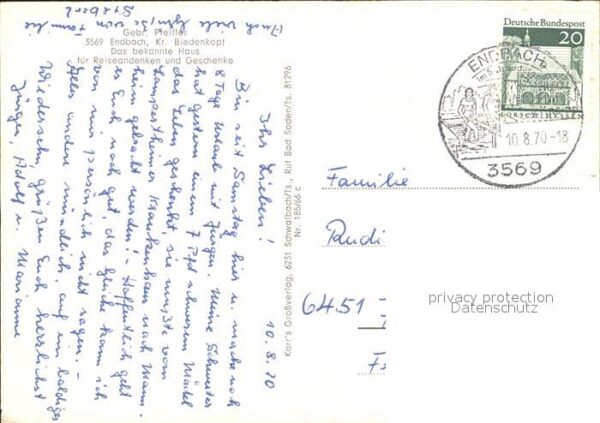 Auch viele Grüße von Familie
Gebr. Pfeiffer
3569 Endbach, Kr. Biedenkopf
Das bekannte Haus
für Reiseandenken und Geschenke
10.8.70
Ihr Lieben!
Bin seit Samstag hier u. mache noch
8 Tage Urlaub mit Jürgen. Meine Schwester
hat gestern einem 7 Pfd schweren Mädel
das Leben geschenkt, sie mußte vom
Lampertheimer Krankenhaus nach Mann-
heim gebracht werden! - Hoffentlich geht
es Euch noch gut, das gleiche kann ich
von mir persönlich nicht sagen. -
Alles andere mündlich, auf ein baldiges
Wiedersehn, grüßen Euch herzlichst
Jürgen, Adolf u. Marianne
Karr's Großverlag, 6231 Schwalbach/Ts., Ruf Bad Soden/Ts. 81296
Nr. 185/66 c
Deutsche Bundespost
20
LORSCH/HESSEN
ENDBACH
10.8.70-18
3569
Familie
Rudi
6451
privacy protection
Datenschutz